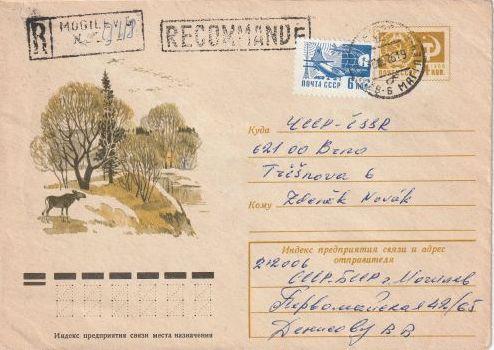 R MOGILEV 6
RECOMMANDE
ПОЧТА СССР 6
Куда ЧССР-ČSSR
621 00 Brno
Třišnova 6
Кому Zdeněk Novák
Индекс предприятия связи и адрес
отправителя
212006
СССР-БССР г. Могилев
Первомайская 42/65
Денисову В В
Индекс предприятия связи места назначения